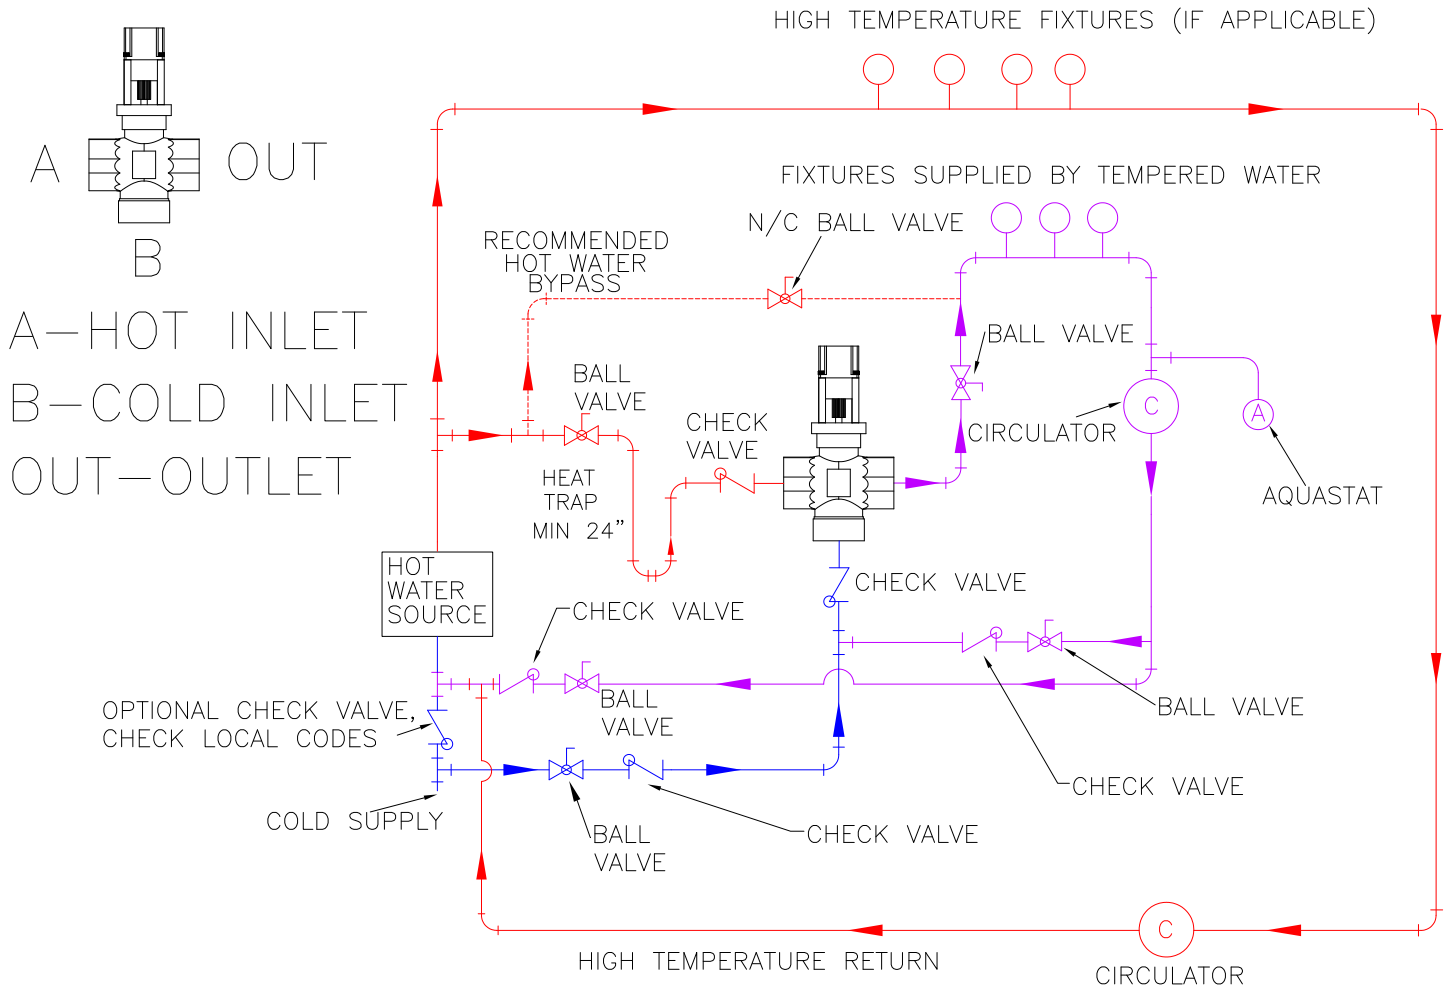 HIGH TEMPERATURE FIXTURES (IF APPLICABLE)
A
OUT
B
A-HOT INLET
B-COLD INLET
OUT-OUTLET
FIXTURES SUPPLIED BY TEMPERED WATER
N/C BALL VALVE
RECOMMENDED
HOT WATER
BYPASS
BALL VALVE
BALL
VALVE
CHECK
VALVE
C
CIRCULATOR
A
AQUASTAT
HEAT
TRAP
MIN 24”
HOT
WATER
SOURCE
CHECK VALVE
CHECK VALVE
BALL
VALVE
BALL VALVE
OPTIONAL CHECK VALVE,
CHECK LOCAL CODES
CHECK VALVE
COLD SUPPLY
BALL
VALVE
CHECK VALVE
C
HIGH TEMPERATURE RETURN
CIRCULATOR